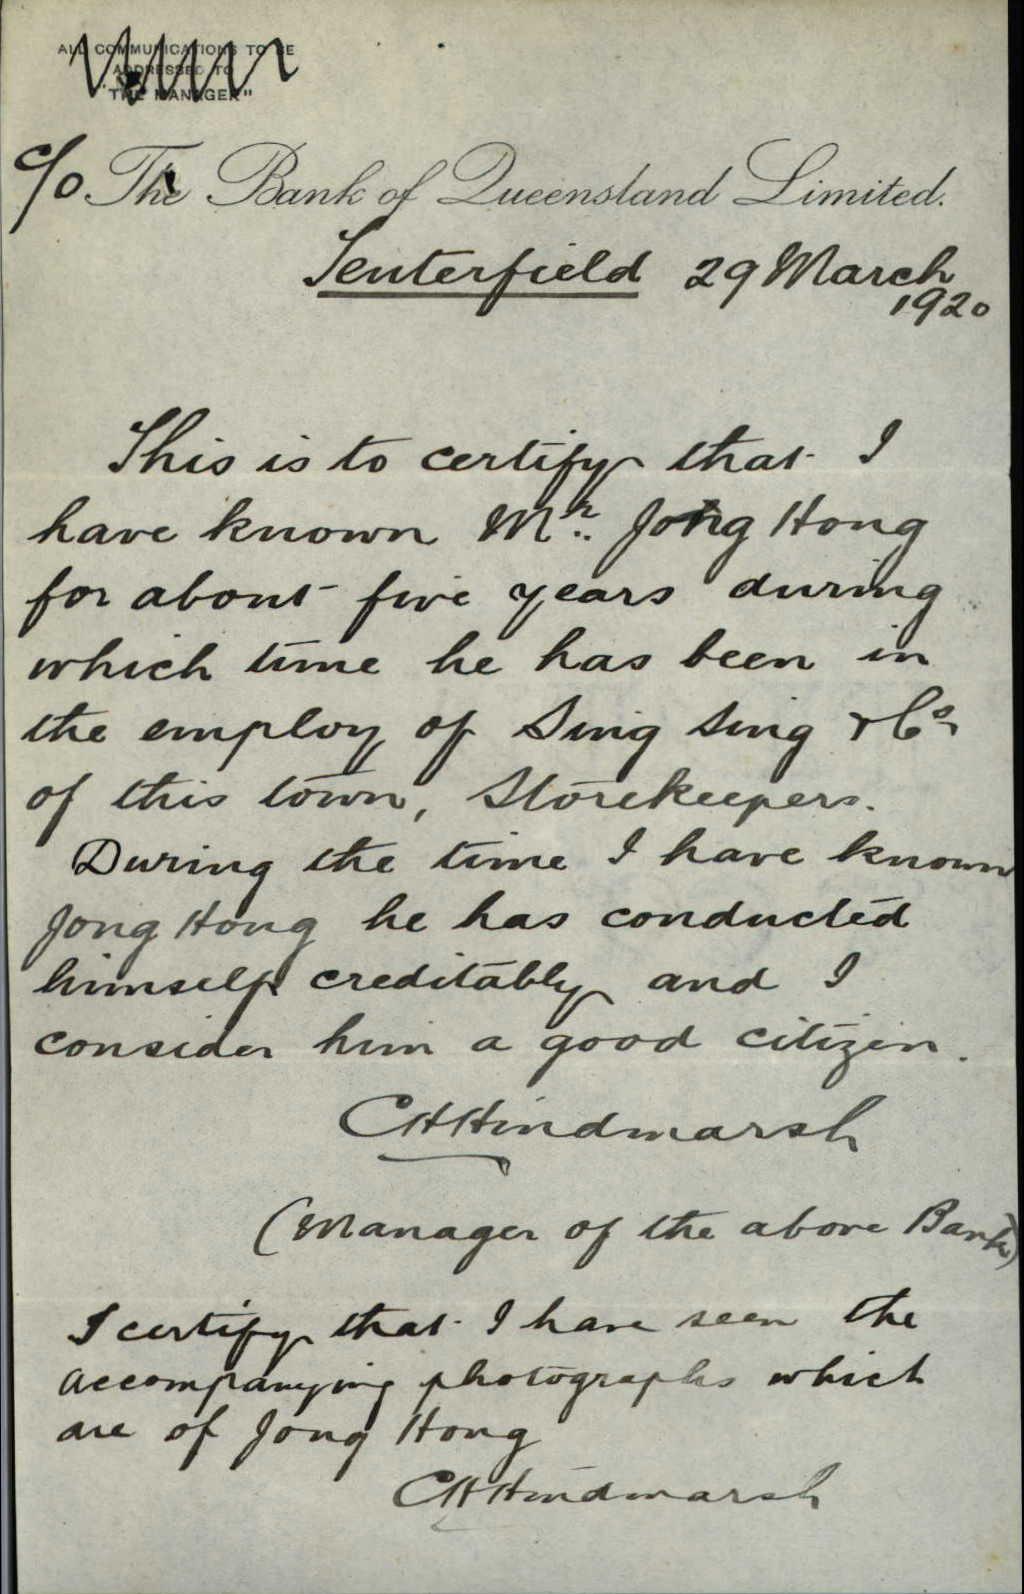 ALL COMMUNICATIONS TO BE
ADDRESSED TO
"THE MANAGER"
c/o The Bank of Queensland Limited.
Tenterfield 29 March
1920
This is to certify that I
have known Mr. Jong Hong
for about five years during
which time he has been in
the employ of Sing Sing & Co
of this town, Storekeepers.
During the time I have known
Jong Hong he has conducted
himself creditably and I
consider him a good citizen.
CHHindmarsh
(Manager of the above Bank)
I certify that I have seen the
accompanying photographs which
are of Jong Hong
CHHindmarsh